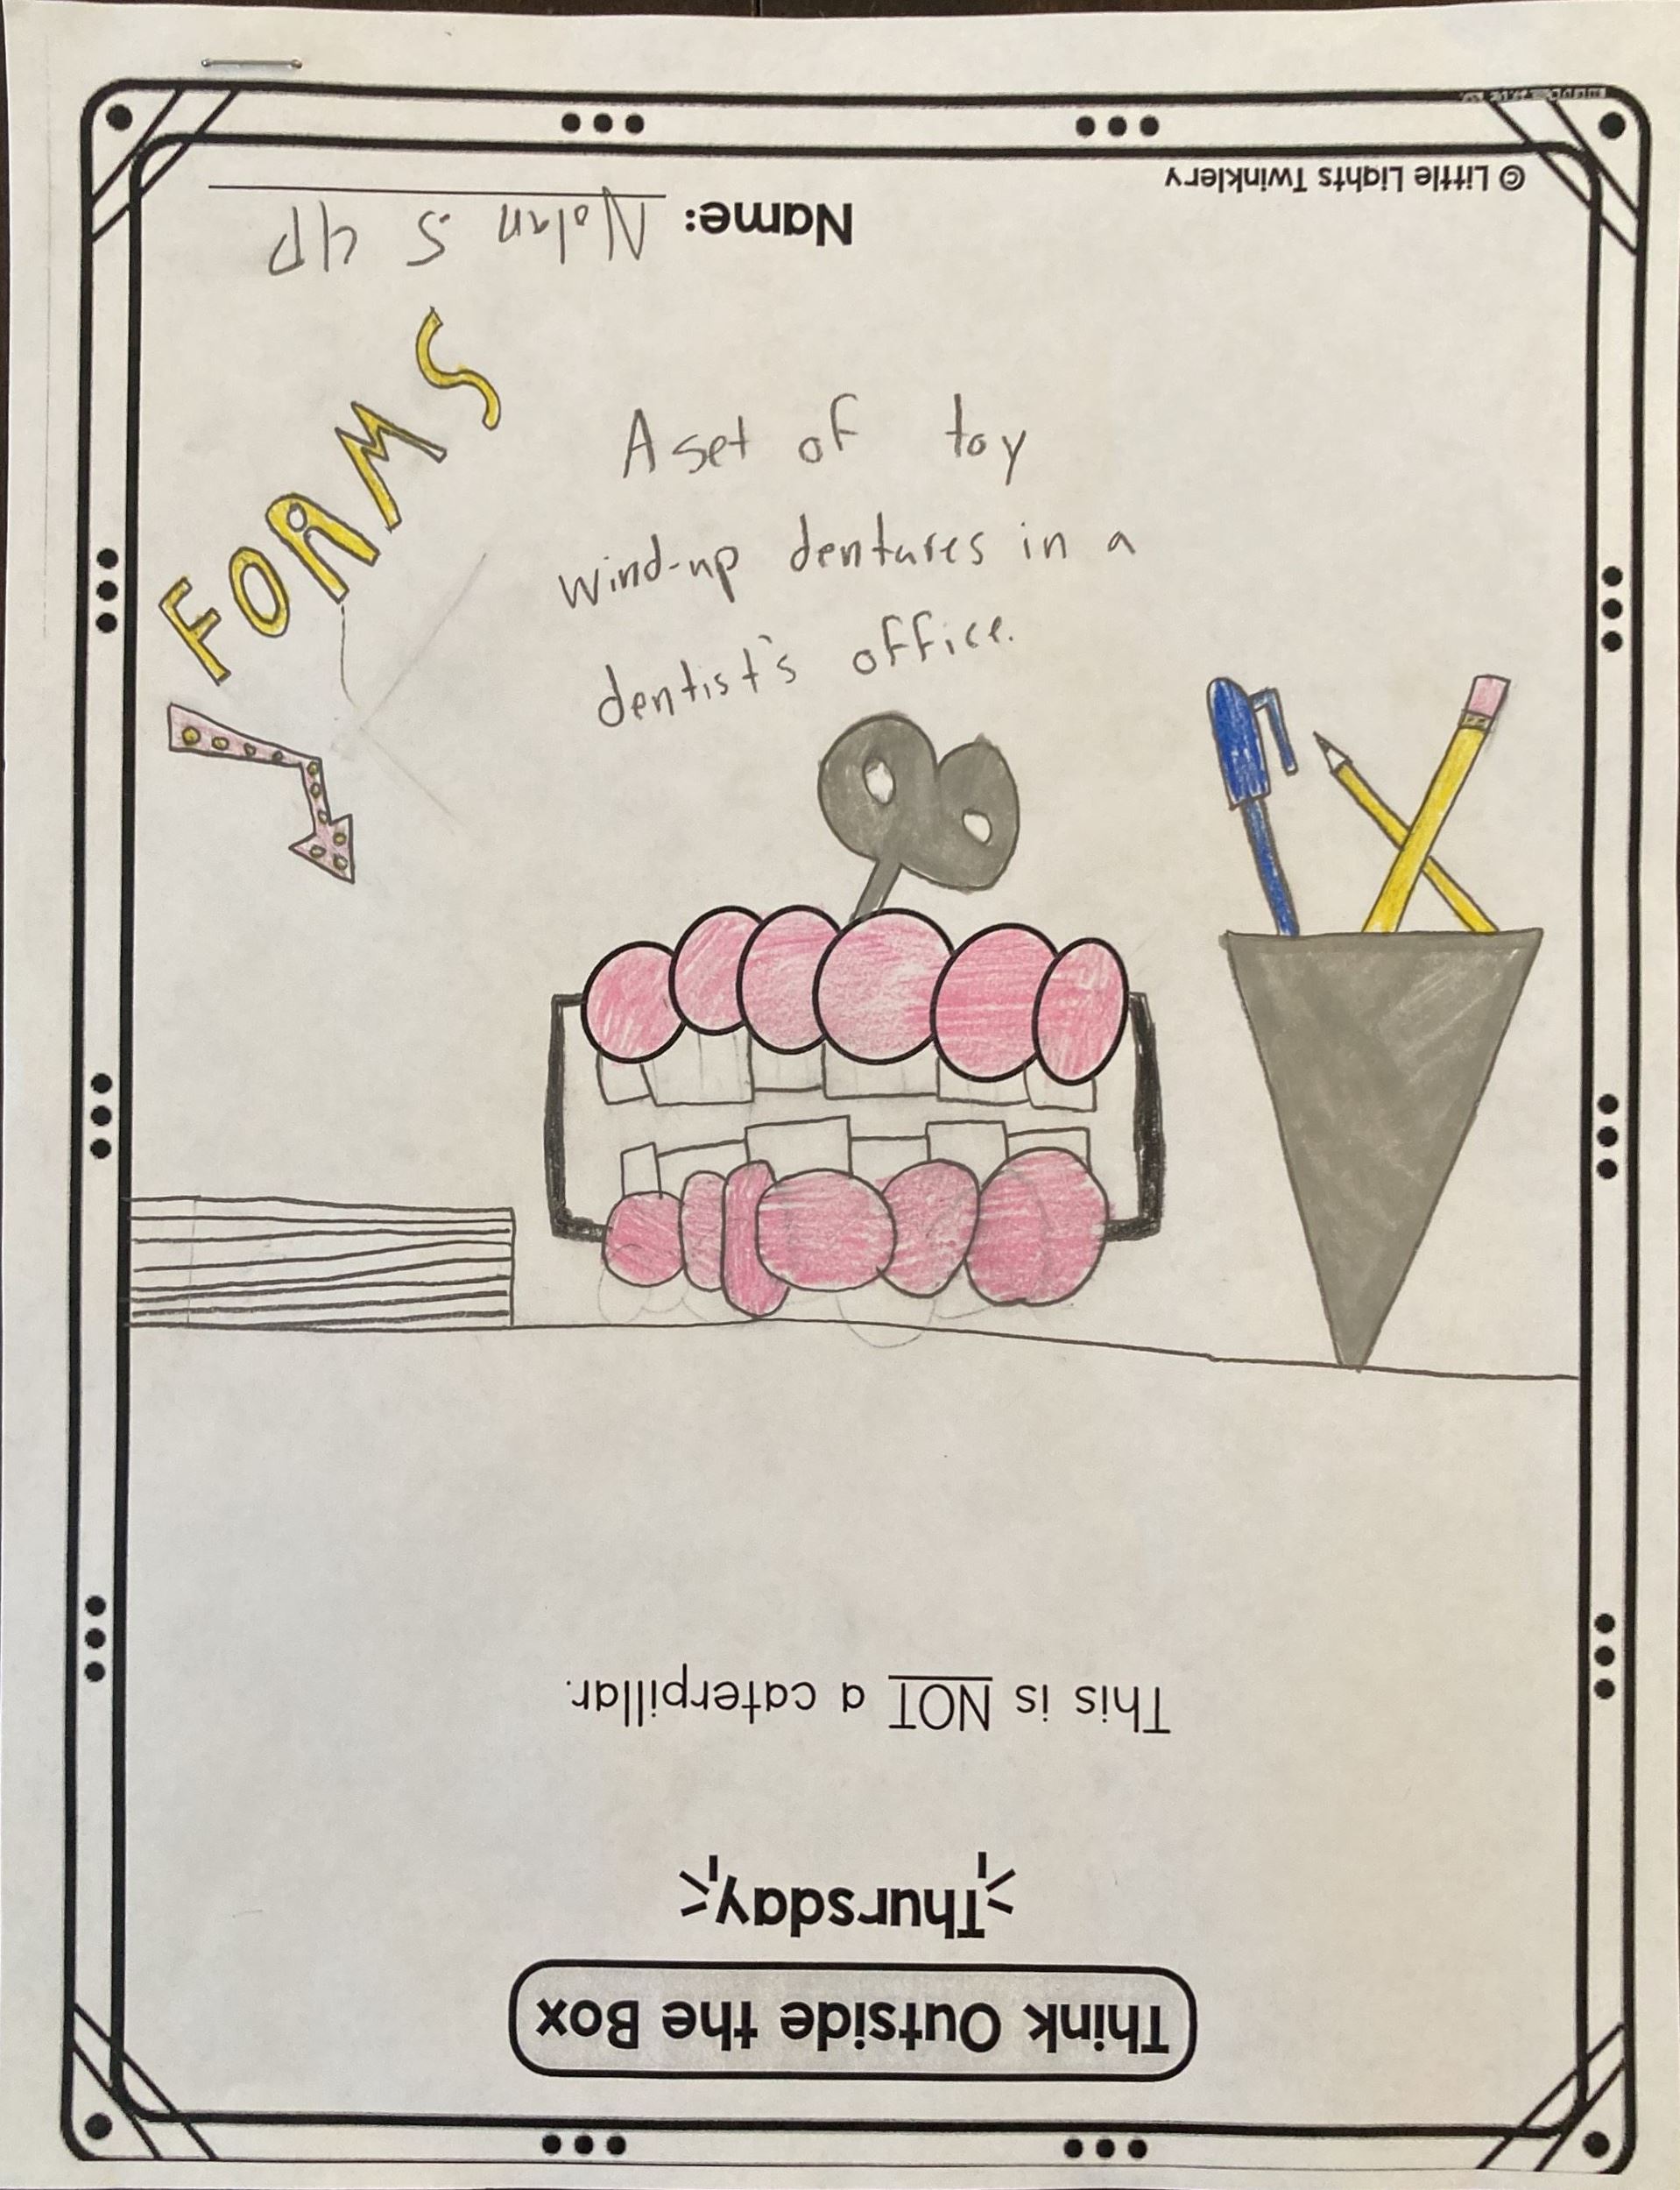 Think Outside the Box
Thursday
This is NOT a caterpillar.
FORMS
A set of toy
wind-up dentures in a
dentist's office.
Name: Nolan S 4P
© Little Lights Twinklery